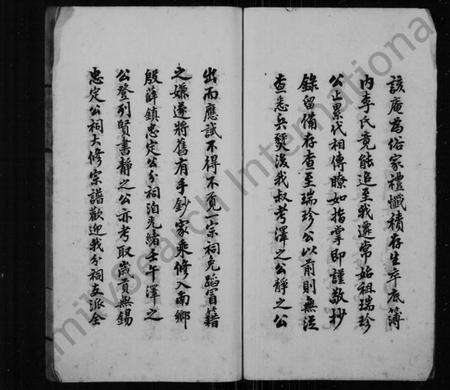 該庵為俗家禮懺積存生卒底簿
內李氏竟能追至我遷常始祖瑞珍
公上累代相傳瞭如指掌即謹敬抄
錄留備存查至瑞珍公以前則無從
查悉兵燹後我叔考澤之公靜之公
出而應試不得不覓一宗祠免蹈冒籍
之嫌遂將舊有手鈔家乘修入南鄉
殷薛鎮忠定公分祠洎光緒壬午澤之
公登列賢書靜之公亦考取歲貢無錫
忠定公祠大修宗譜歡迎我分祠五派全